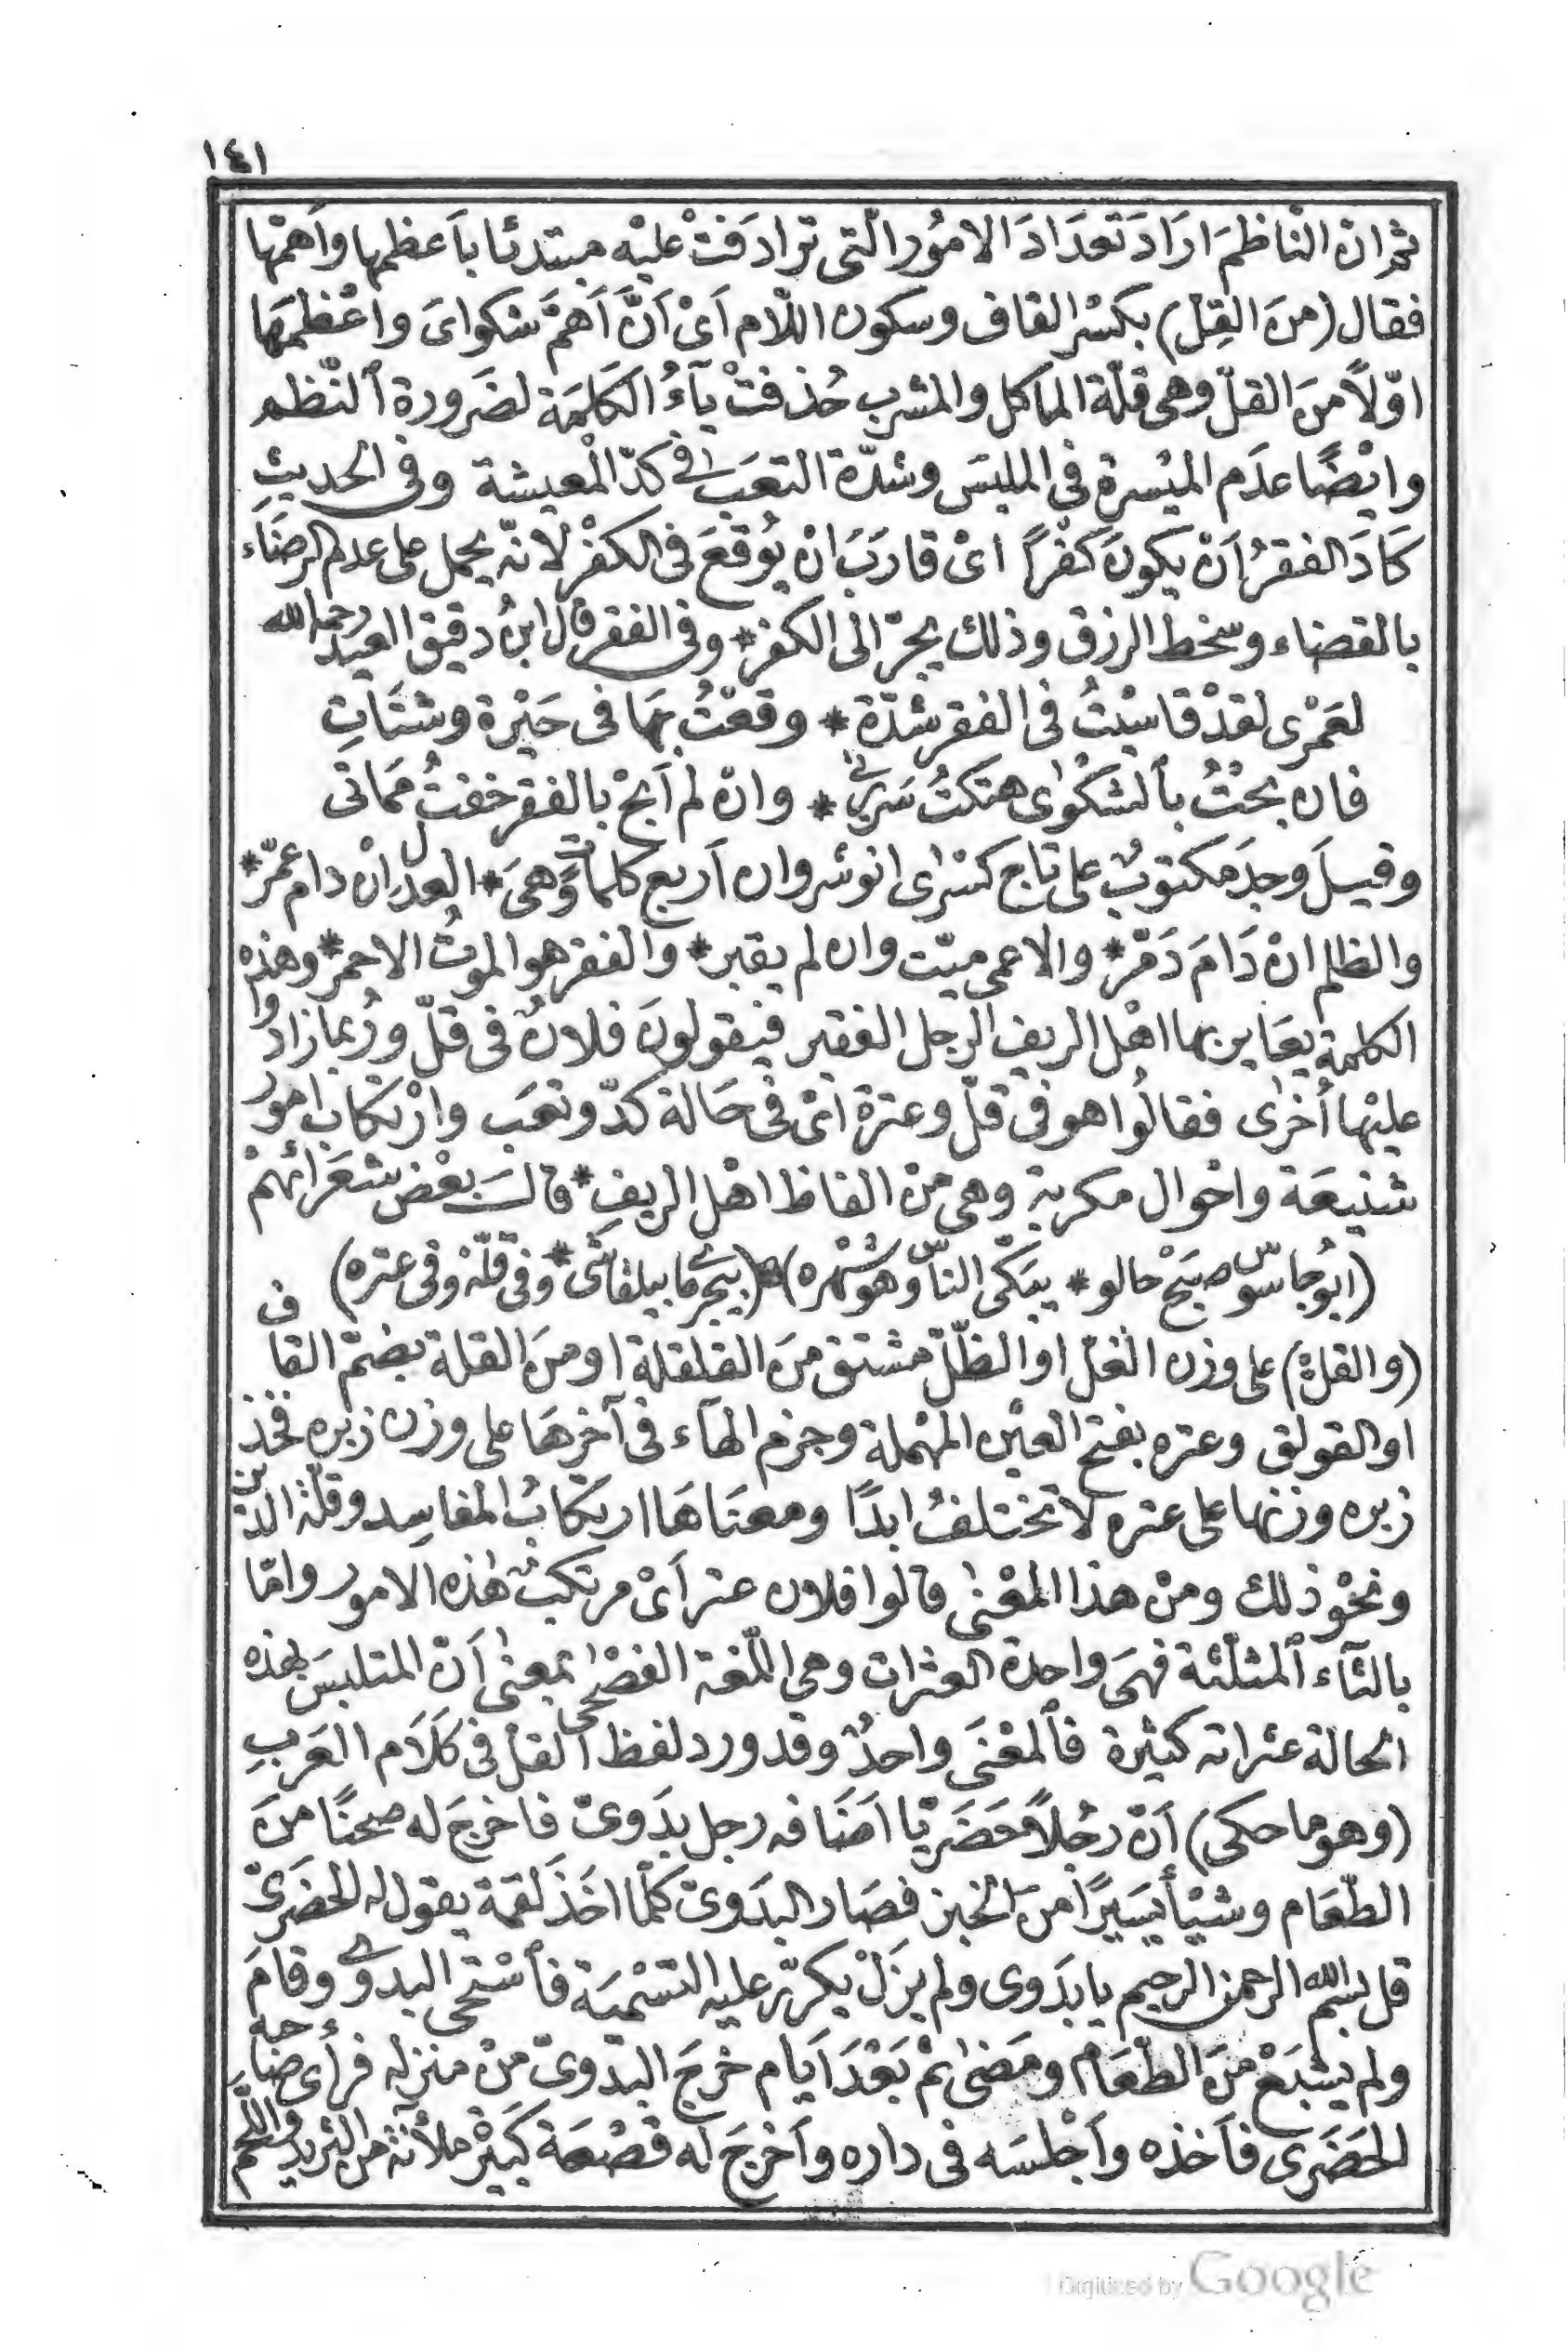 ١٤١
ثم ان النّاظمَ ارَادَ تَعدَادَ الامُور الّتى ترادَفتْ عليْه مبتدئا باَعظمها واَهمّها
فقال (منَ القِلْ) بكسْر القاف وسكون اللّام اَىْ اَنَّ اَهمَّ شكواىَ واعْظمهَا
اوّلاً منَ القلّ وهى قلّة الماكل والمشرب حُذفتْ يآءُ الكَلمَة لضَرورة ٱلنّظم
وايْضًا عدَم الميْسرة فى الملبسَ وشدّة التعَب فى كدّ الْمعيشة وفى الحديثِ
كَادَ الفقرُ اَنْ يكونَ كفْراً اىْ قاربَ انْ يُوقعَ فى الكفْر لانّه يحمل على عدم الرضَاء
بالقضاء وسخط الرزق وذلك يجرّ الى الكفر * وفى الفقر قال ابنُ دقيق العيد رحمه الله
لعَمْرى لقدْ قاسيْتُ فى الفقر شدّة * وقعْتُ بهَا فى حَيْرة وشتَاتِ
فان بحْتُ بٱلشكْوٰى هتكتُ سَريرتى * وانْ لم اَبحْ بالفقر خفتُ ممَاتى
وقيلَ وجدَ مكتوبٌ على تاج كسْرٰى انوشروان اَربع كلمات وَهىَ * العدل انْ دام عمّرْ *
والظلم انْ دَامَ دَمّرْ * والاعمى ميّت وان لم يقبر * والفقر هو الموتُ الاحمرْ * وهذه
الكلمة يعَاير بها اهْل الريف الرجل الفقير فيقولونَ فلانٌ فى قلّ ورُبما زادُوا
عليْها اُخرٰى فقالُوا هو فى قلّ وعترةْ اىْ فى حَالة كدّ وتعَب وارْتكاب امور
شنيعَة واحْوال مكربة وهى منْ الفاظ اهْل الريفِ * قالَ بعْض شعَرائهمْ
(ابُو جاسوس صبَحْ حالو * يبَكّى النّاس وهو شهْره) * (يجرى ما بيلقا شى * وفى قلّهْ وفى عتره)
(والقلْ) على وزن الغلّ او الظّلّ مشتق منَ القلقلة او منَ القلة بضمّ القاف
او القولق وعتره بفتح العيْن المهْملة وجزم الهآء فى آخرهَا على وزن زبره فخذ
زبره وزنها على عتره لا تختلفُ ابدًا ومعنَاهَا ارتكابُ المفاسِد وقلّة الدّين
ونحْو ذلك ومنْ هذا المعْنٰى قالوا فلان عتر اَىْ مرتكبٌ هٰذه الامور وامّا
بالثآء ٱلمثلّثة فهىَ واحدة العثرات وهى اللّغة الفصْحٰى بمعنٰى اَنّ المتلبسَ بهذه
الحالة عثراته كثيْرة فٱلمعْنَى واحدٌ وقد ورد لفظ القلّ فى كلَام العَربِ
(وهو ما حكى) اَنّ رجُلاً حَضَريّا اضَافه رجل بدَوىّ فاخرجَ له صحنًا منَ
الطّعَام وشيْأً يسَيرًا منَ الخبز فصَار البدَوىّ كلّما اخَذَ لقمة يقول له الحضَرىّ
قل بسم الله الرحمن الرحيم يا بدَوى ولم يزَلْ يكرّر عليه التسْميَة فٱسْتحى البدوىّ وقامَ
ولم يشبَعْ منَ الطّعَام ومَضىٰ ثمْ بَعْدَ اَيام خرجَ البدوىّ منْ منزله فرأى صَاحبه
الحَضَرى فٱخذه واَجْلسَه فى داره واَخرجَ له قصْعَة كبَيْرة ملأنة من الثريد واللّحم
Digitized by Google